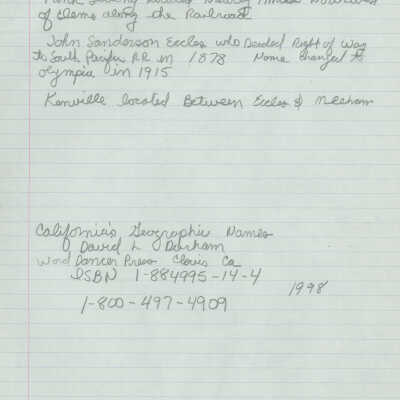 of Clems along the Railroad
John Sanderson Eccles who Deeded Right of Way
to South Pacific RR in 1878 Name changed to
Olympia in 1915
Kenville located Between Eccles & Meehan
California's Geographic Names
David L Durham
Word Dancer Press Clovis Ca
ISBN 1-884995-14-4
1998
1-800-497-4909